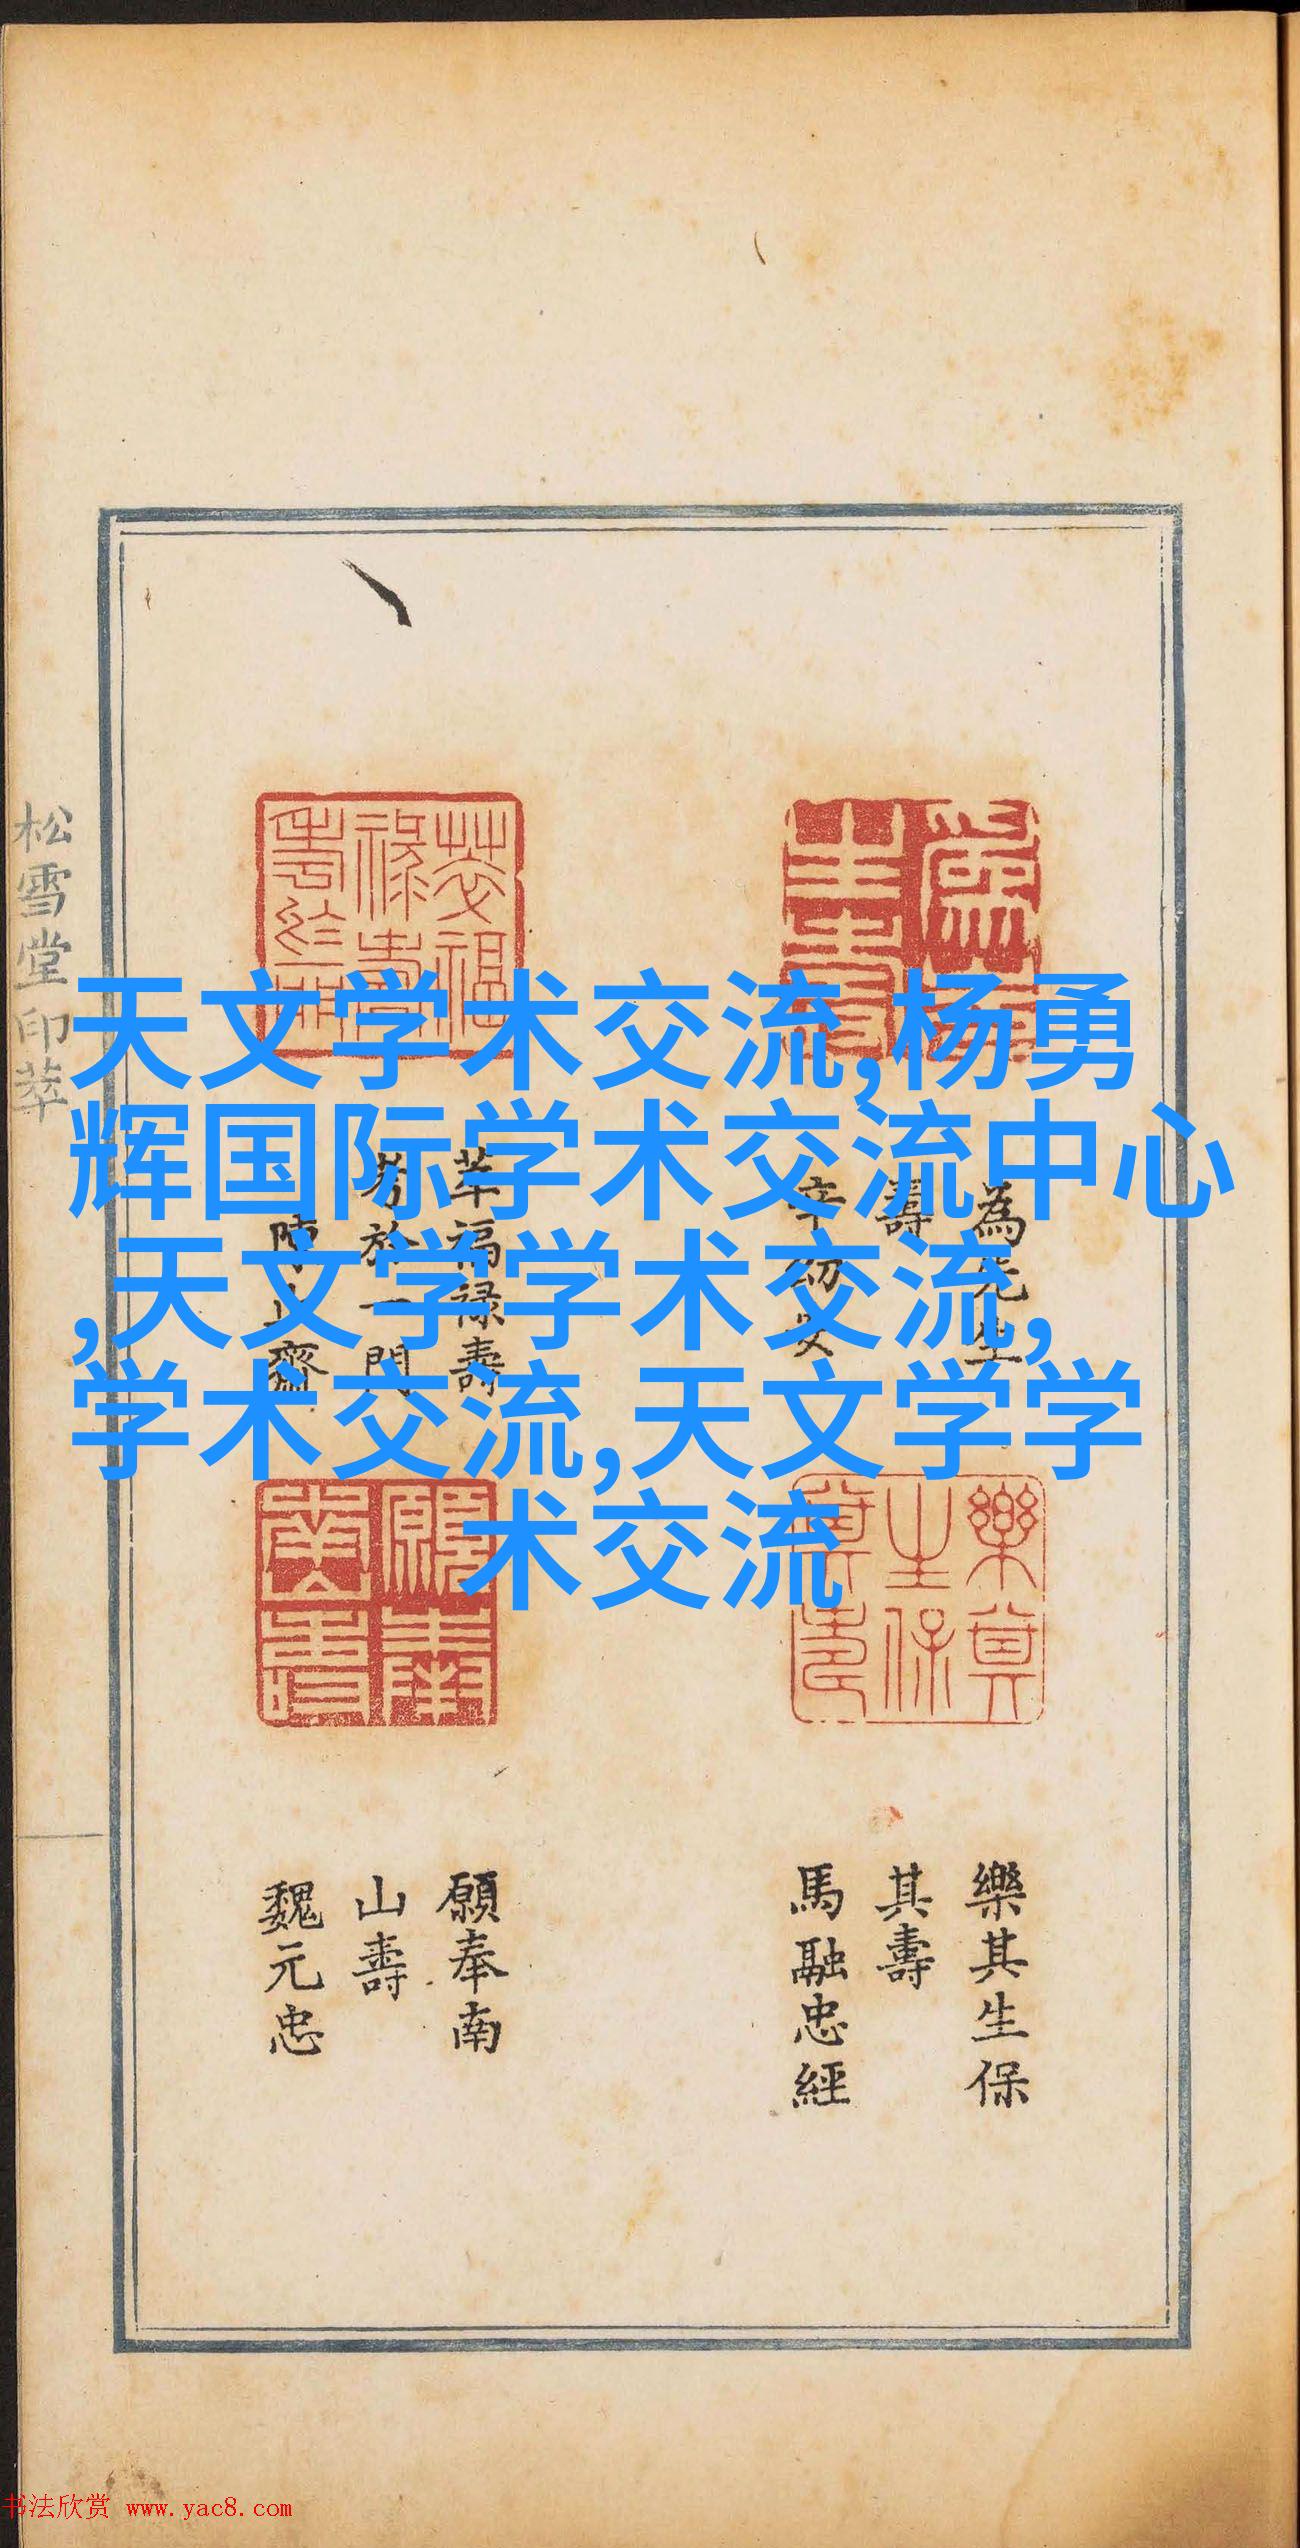 天文学术交流,杨勇
辉国际学术交流中心
,天文学学术交流,
学术交流,天文学学
术交流
松雪堂印萃
為先生
壽
辛幼安
萃福祿壽
於一門
樂其生保
其壽
馬融忠經
願奉南
山壽
魏元忠
书法欣赏 www.yac8.com